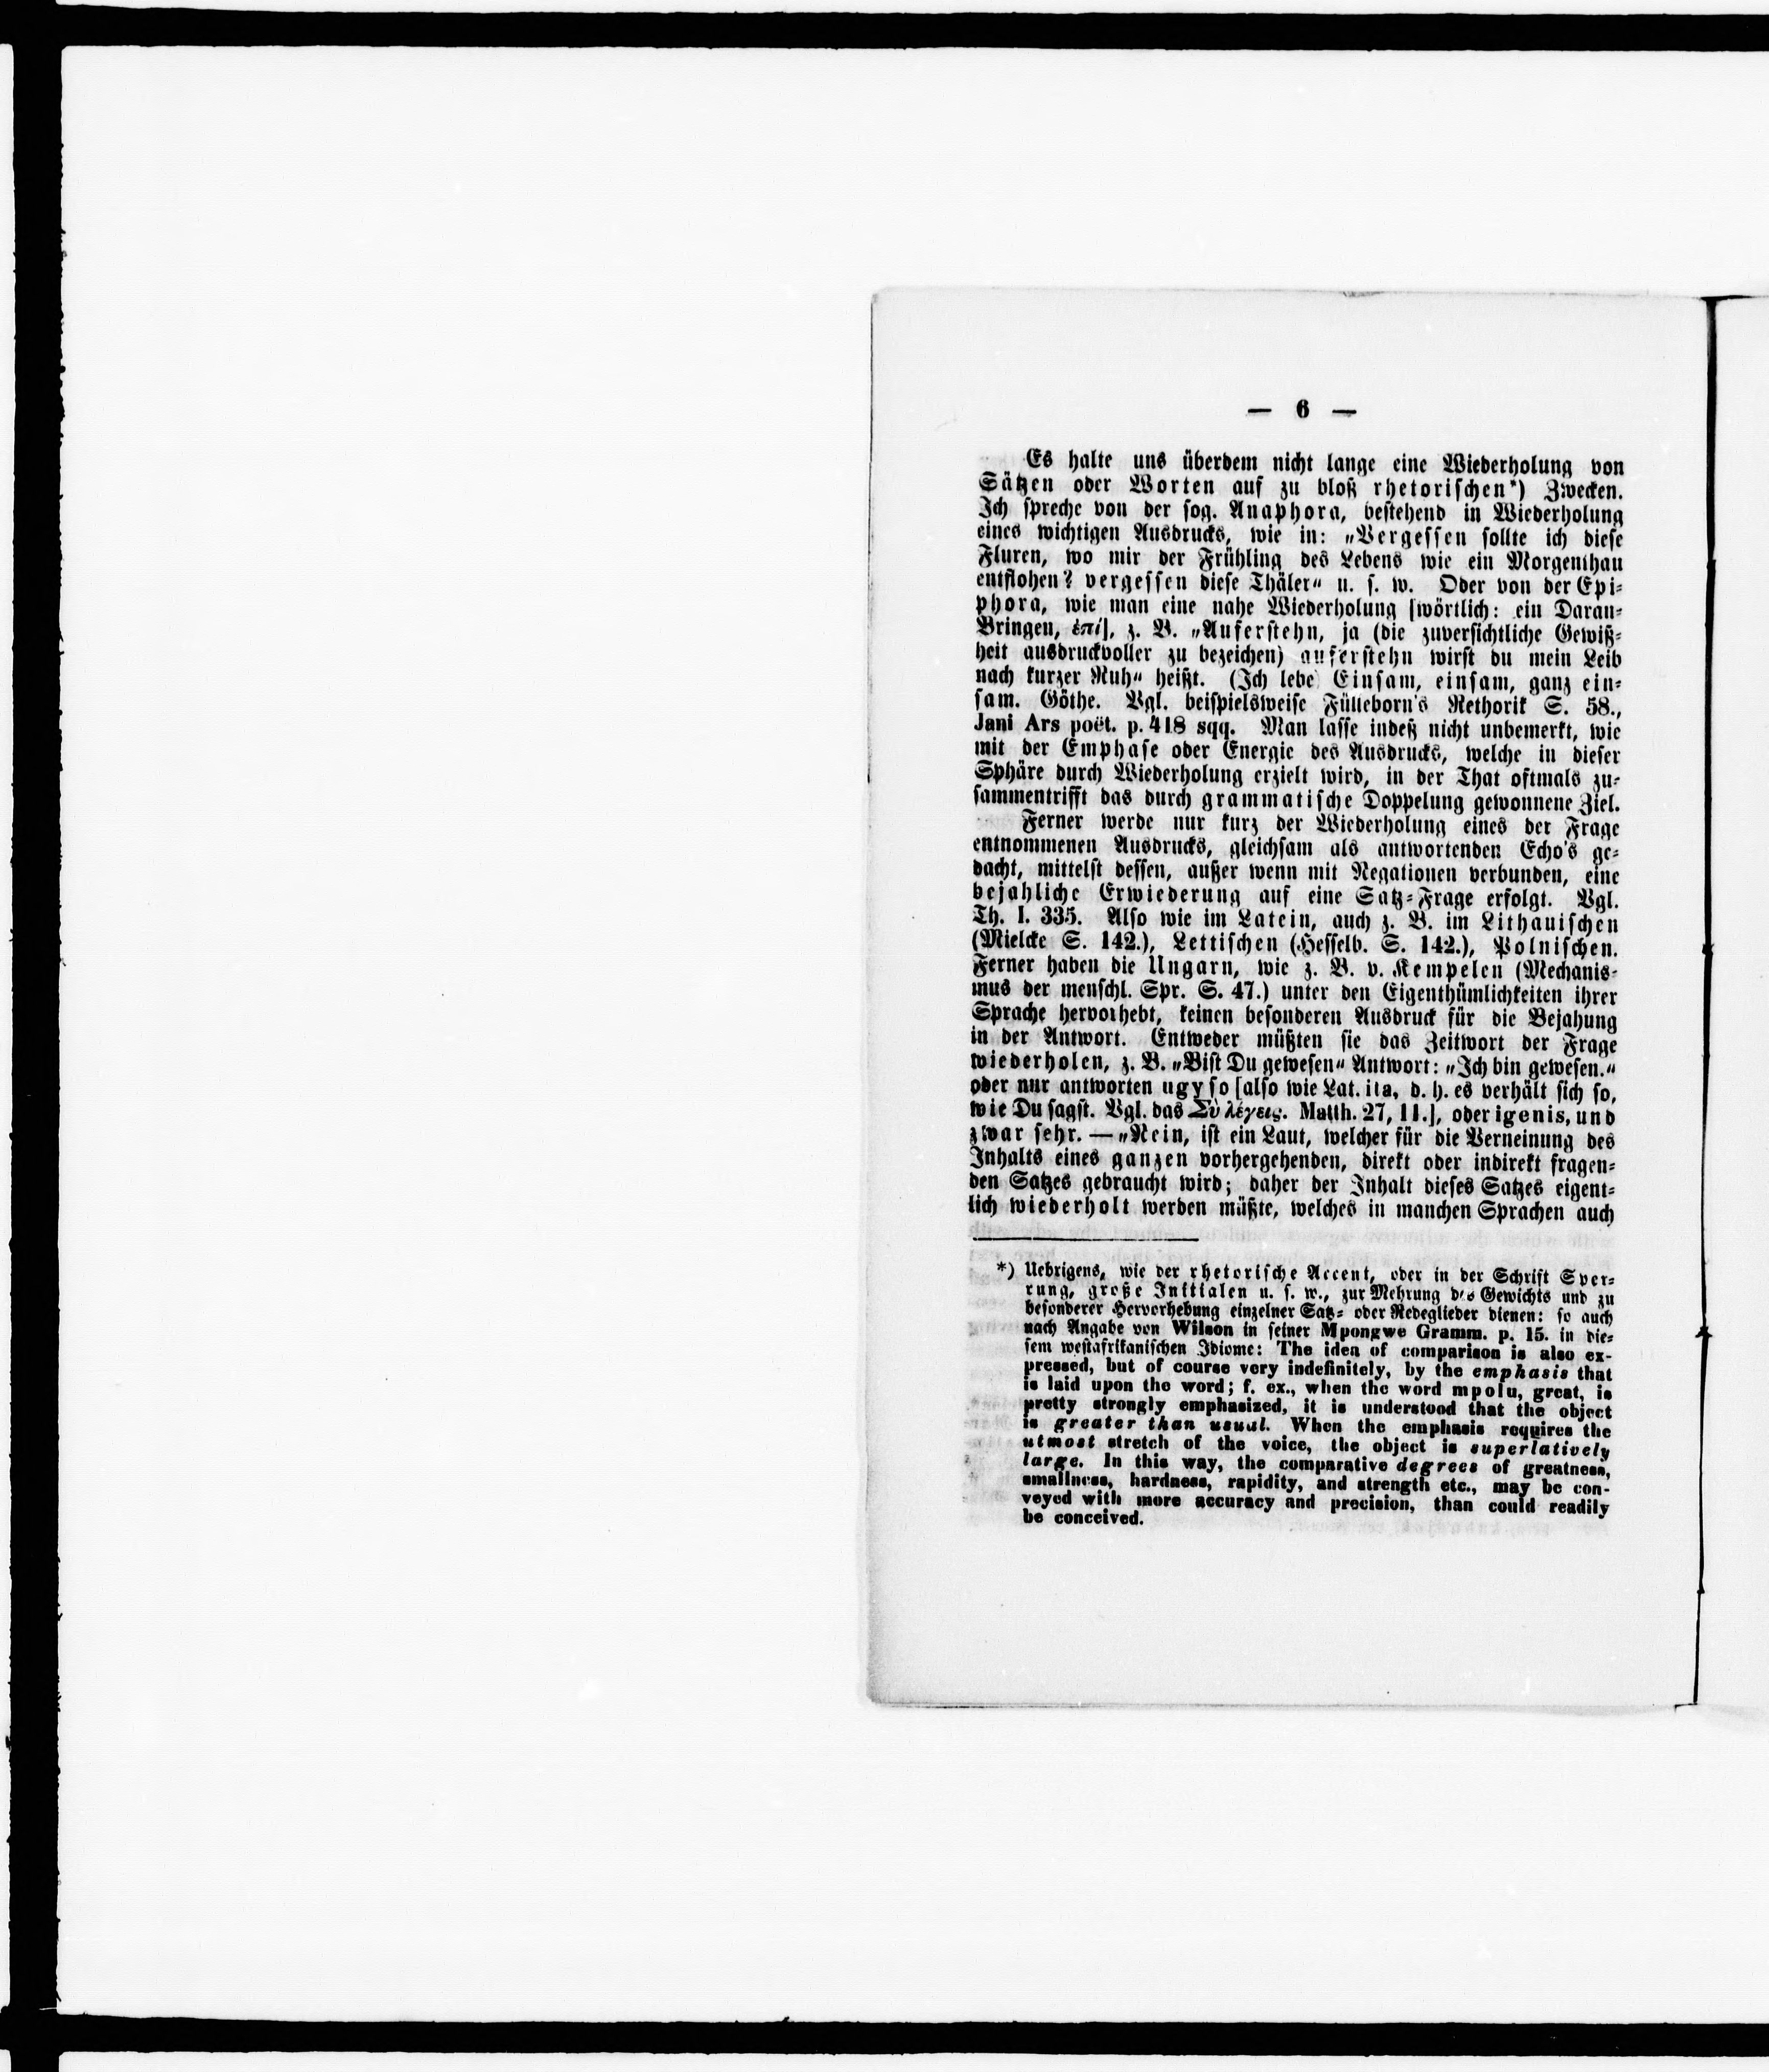 — 6 —
Es halte uns überdem nicht lange eine Wiederholung von
Sätzen oder Worten auf zu bloß rhetorischen*) Zwecken.
Ich spreche von der sog. Anaphora, bestehend in Wiederholung
eines wichtigen Ausdrucks, wie in: „Vergessen sollte ich diese
Fluren, wo mir der Frühling des Lebens wie ein Morgenthau
entflohen? vergessen diese Thäler“ u. s. w. Oder von der Epi-
phora, wie man eine nahe Wiederholung [wörtlich: ein Daran-
Bringen, ἐπί], z. B. „Auferstehn, ja (die zuversichtliche Gewiß-
heit ausdruckvoller zu bezeichen) auferstehn wirst du mein Leib
nach kurzer Ruh“ heißt. (Ich lebe) Einsam, einsam, ganz ein-
sam. Göthe. Vgl. beispielsweise Fülleborn's Rethorik S. 58.,
Jani Ars poët. p. 418 sqq. Man lasse indeß nicht unbemerkt, wie
mit der Emphase oder Energie des Ausdrucks, welche in dieser
Sphäre durch Wiederholung erzielt wird, in der That oftmals zu-
sammentrifft das durch grammatische Doppelung gewonnene Ziel.
Ferner werde nur kurz der Wiederholung eines der Frage
entnommenen Ausdrucks, gleichsam als antwortenden Echo's ge-
dacht, mittelst dessen, außer wenn mit Negationen verbunden, eine
bejahliche Erwiederung auf eine Satz-Frage erfolgt. Vgl.
Th. I. 335. Also wie im Latein, auch z. B. im Lithauischen
(Mielcke S. 142.), Lettischen (Hesselb. S. 142.), Polnischen.
Ferner haben die Ungarn, wie z. B. v. Kempelen (Mechanis-
mus der menschl. Spr. S. 47.) unter den Eigenthümlichkeiten ihrer
Sprache hervorhebt, keinen besonderen Ausdruck für die Bejahung
in der Antwort. Entweder müßten sie das Zeitwort der Frage
wiederholen, z. B. „Bist Du gewesen“ Antwort: „Ich bin gewesen.“
oder nur antworten ugy so [also wie Lat. ita, d. h. es verhält sich so,
wie Du sagst. Vgl. das Σὺ λέγεις. Matth. 27, 11.], oder igenis, und
zwar sehr. — „Nein, ist ein Laut, welcher für die Verneinung des
Inhalts eines ganzen vorhergehenden, direkt oder indirekt fragen-
den Satzes gebraucht wird; daher der Inhalt dieses Satzes eigent-
lich wiederholt werden müßte, welches in manchen Sprachen auch
*) Uebrigens, wie der rhetorische Accent, oder in der Schrift Sper-
rung, große Initialen u. s. w., zur Mehrung des Gewichts und zu
besonderer Hervorhebung einzelner Satz- oder Redeglieder dienen: so auch
nach Angabe von Wilson in seiner Mpongwe Gramm. p. 15. in die-
sem westafrikanischen Idiome: The idea of comparison is also ex-
pressed, but of course very indefinitely, by the emphasis that
is laid upon the word; f. ex., when the word mpolu, great, is
pretty strongly emphasized, it is understood that the object
is greater than usual. When the emphasis requires the
utmost stretch of the voice, the object is superlatively
large. In this way, the comparative degrees of greatness,
smallness, hardness, rapidity, and strength etc., may be con-
veyed with more accuracy and precision, than could readily
be conceived.